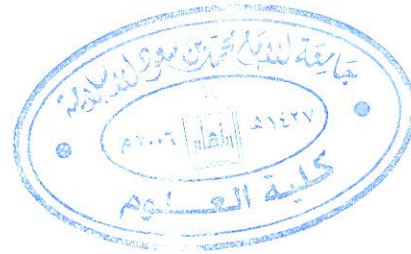 جامعة الإمام محمد بن سعود الإسلامية
١٤٢٧هـ
٢٠٠٦م
كلية العـــلوم